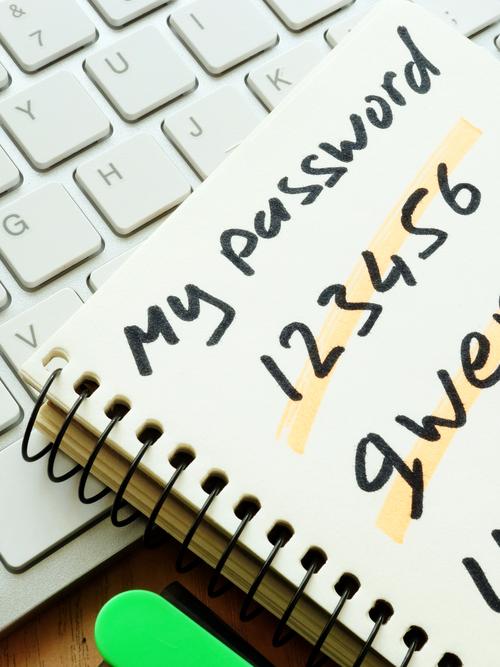 My password
123456
qwe
&
7
U
I
Y
H
J
K
G
V